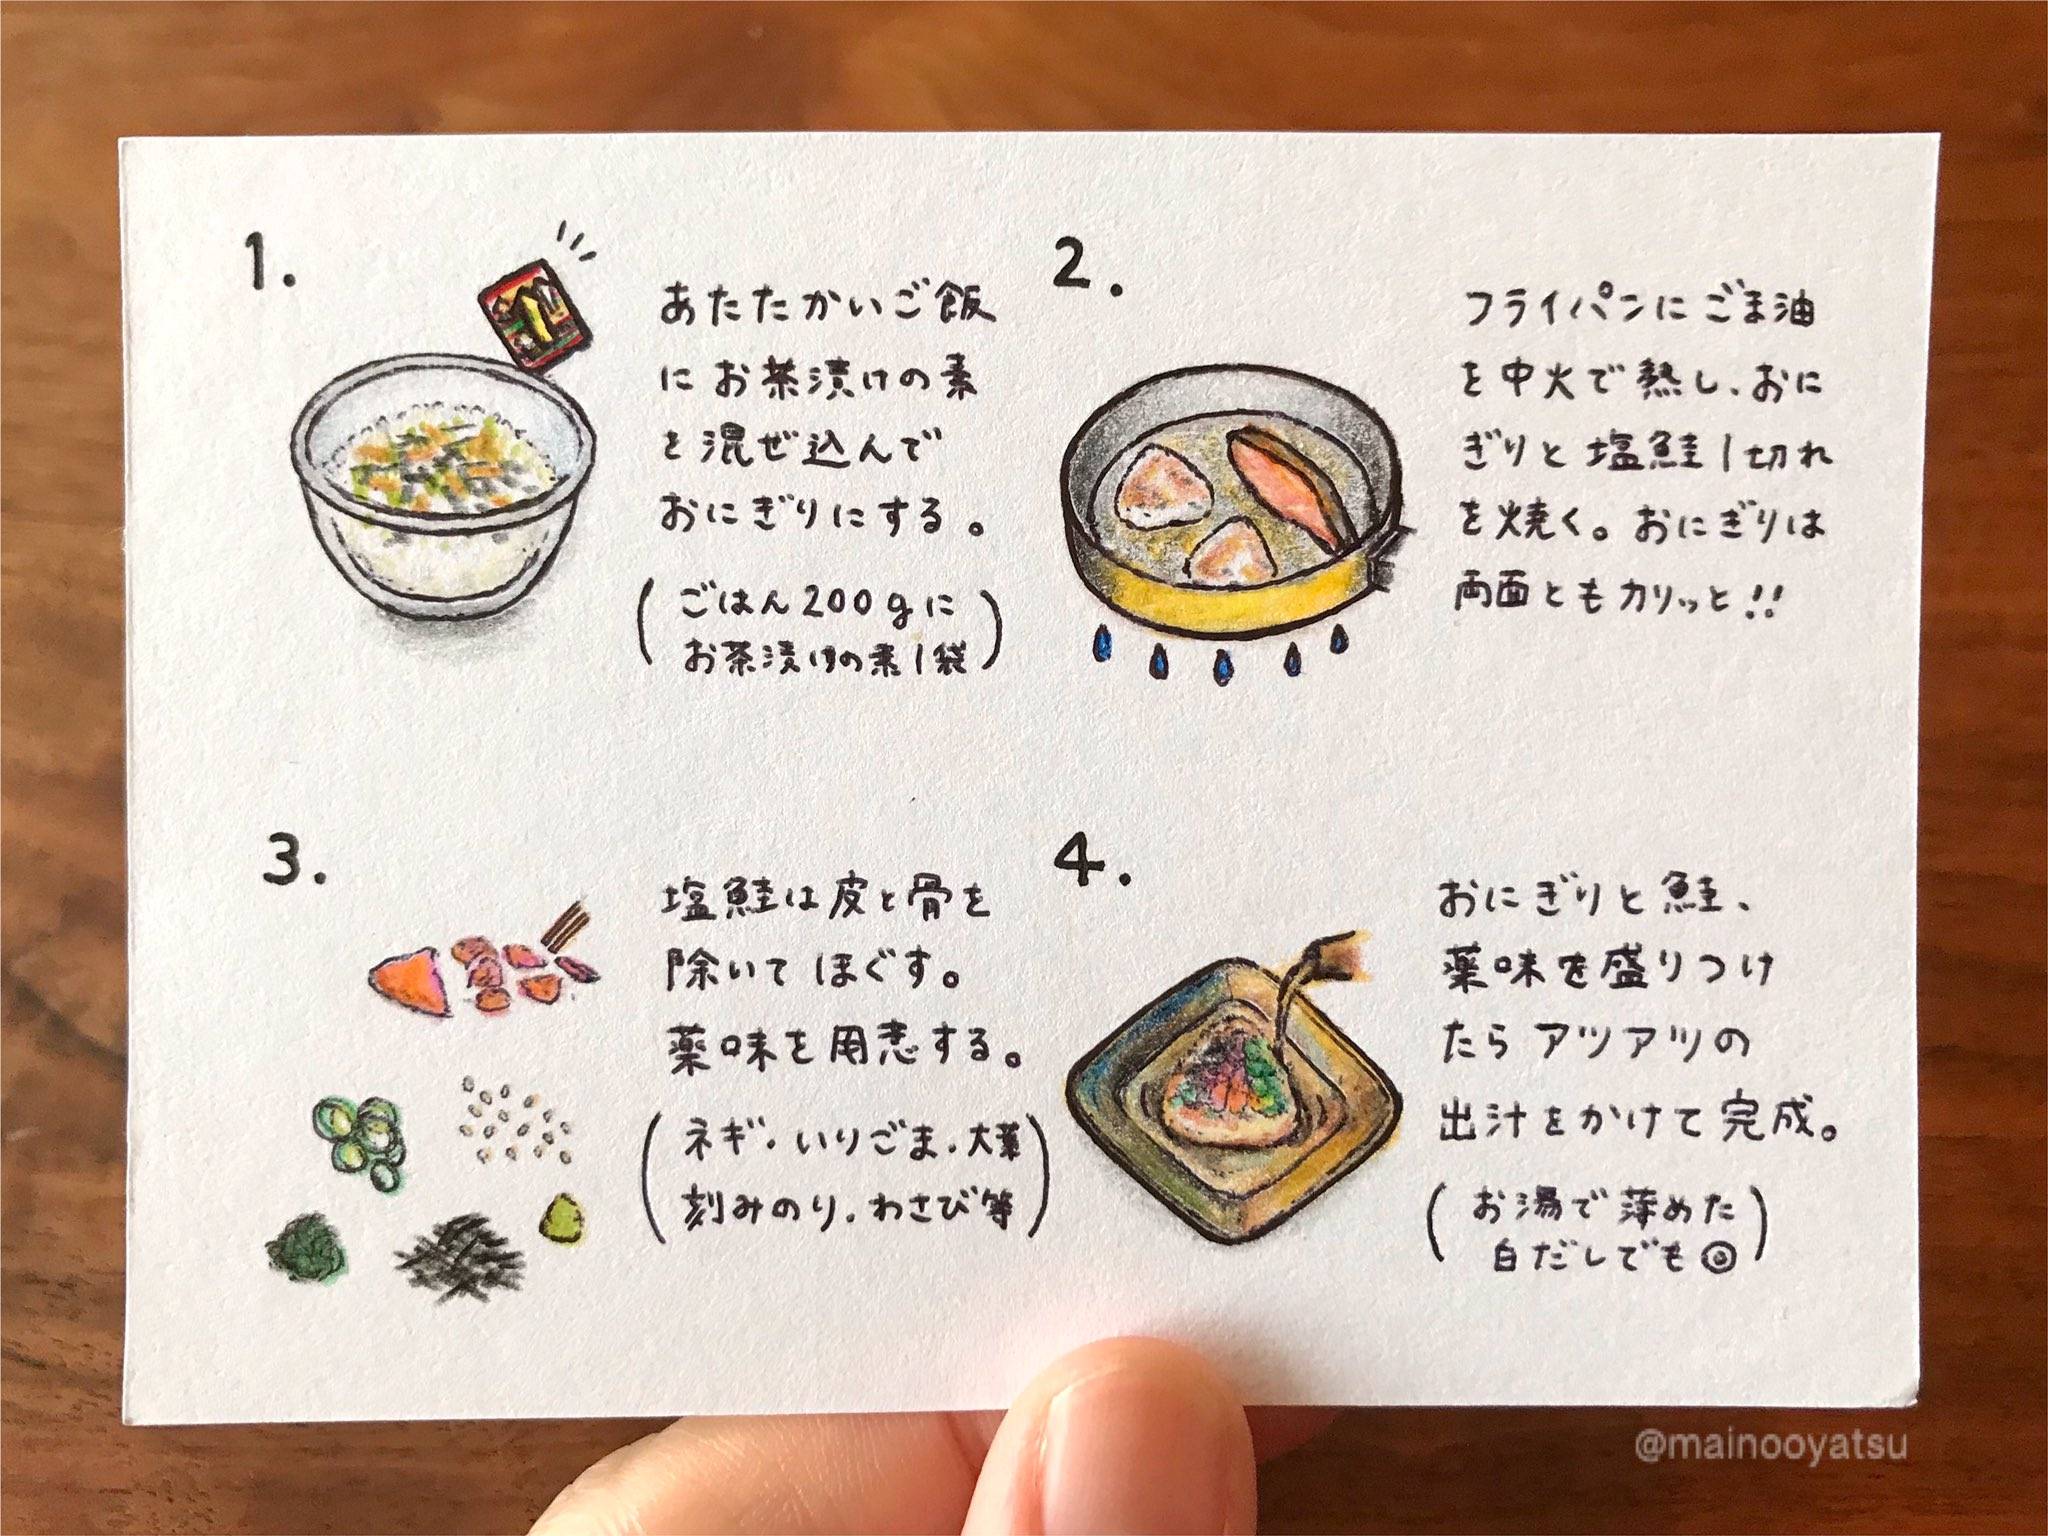 1.
あたたかいご飯
にお茶漬けの素
を混ぜ込んで
おにぎりにする。
(ごはん200gに
お茶漬けの素1袋)
2.
フライパンにごま油
を中火で熱し、おに
ぎりと塩鮭1切れ
を焼く。おにぎりは
両面ともカリッと!!
3.
塩鮭は皮と骨を
除いてほぐす。
薬味を用意する。
(ネギ・いりごま・大葉
刻みのり・わさび等)
4.
おにぎりと鮭、
薬味を盛りつけ
たらアツアツの
出汁をかけて完成。
(お湯で薄めた
白だしでも◎)
@mainooyatsu